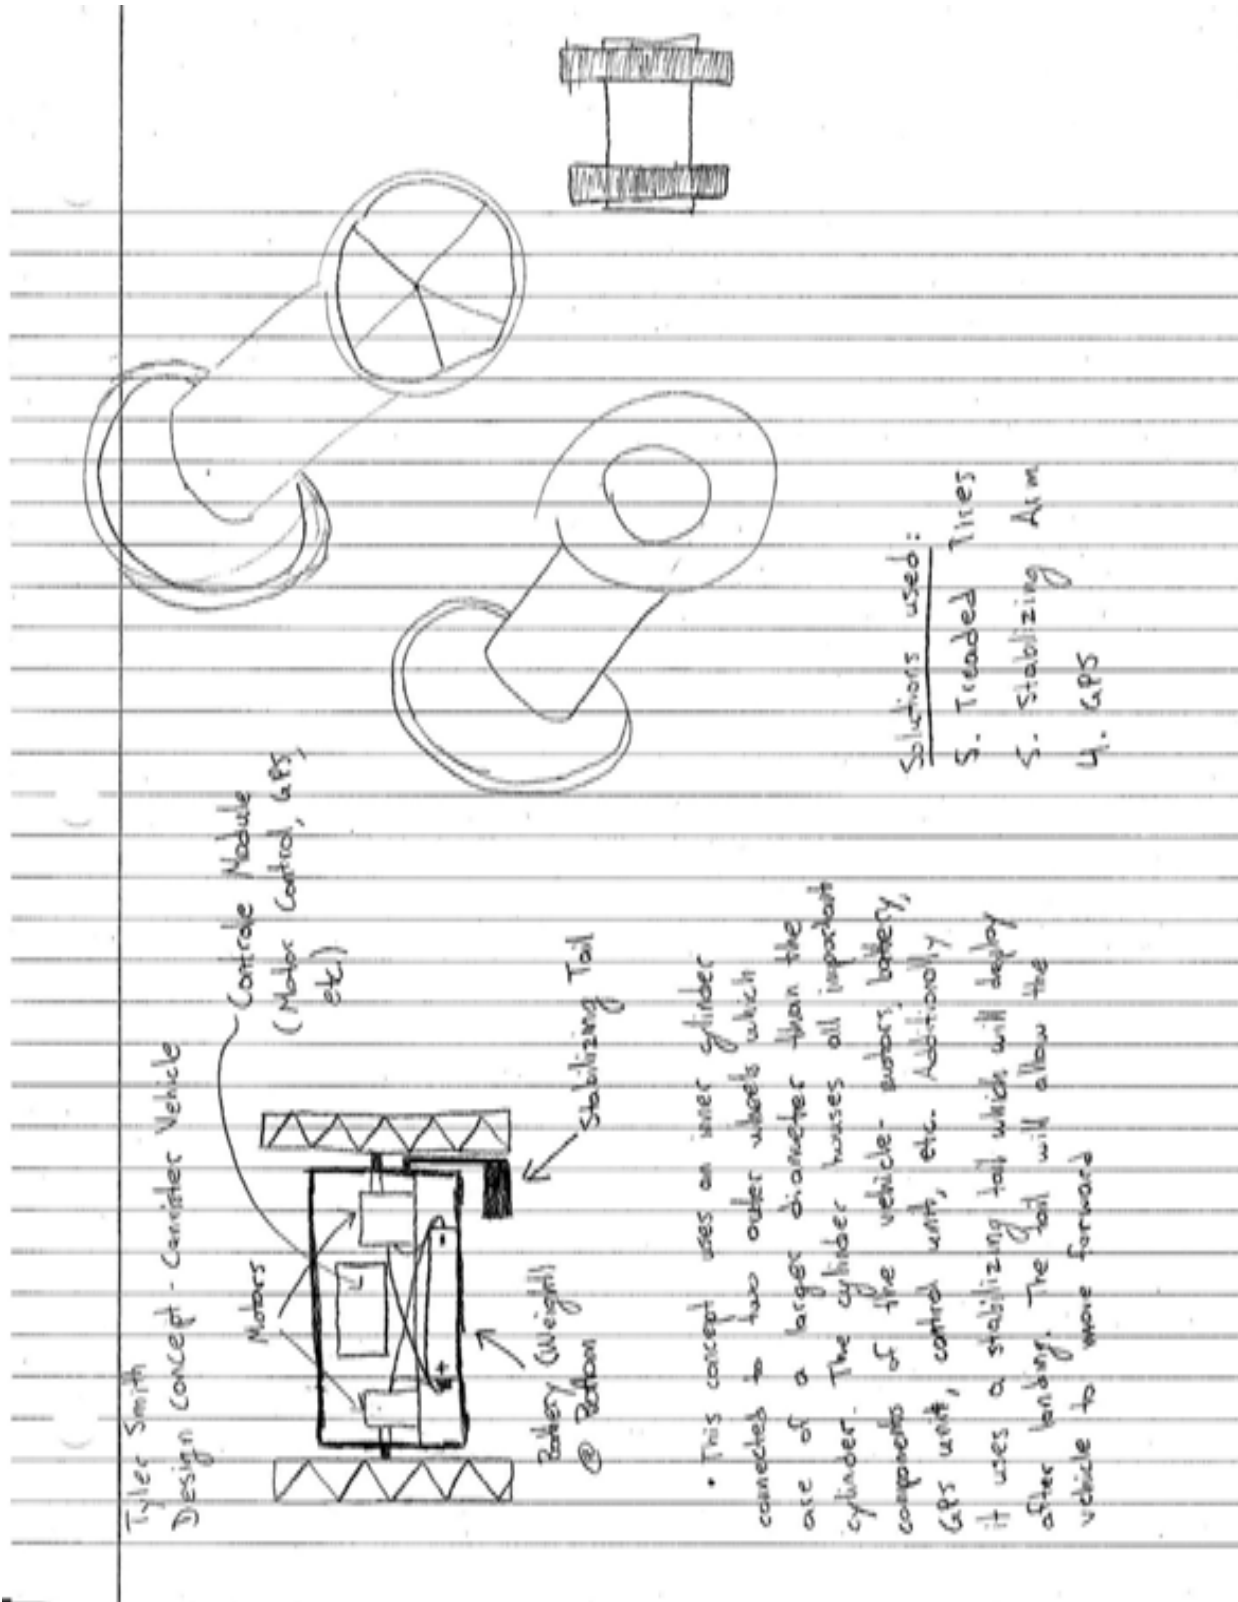 Tyler Smith
Design Concept - Canister Vehicle
Motors
Controle Module
(Motor Control, GPS,
etc.)
Battery (Weight)
@ Bottom
Stabilizing Tail
• This concept uses an inner cylinder
connected to two outer wheels which
are of a larger diameter than the
cylinder. The cylinder houses all important
components of the vehicle- motors, battery,
GPS unit, control unit, etc. Additionally
it uses a stabilizing tail which will deploy
after landing. The tail will allow the
vehicle to move forward
Solutions used:
5. Treaded Tires
5. Stabilizing Arm
4. GPS
+
-